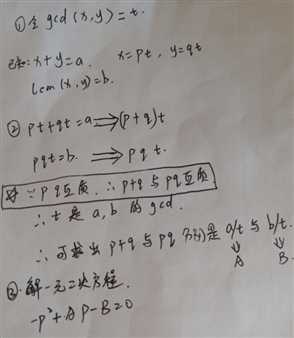 ① 令 gcd(x,y)=t.
已知: x+y=a. x=pt, y=qt
lcm(x,y)=b.
② pt+qt=a⟹(p+q)t
pqt=b. ⟹ pqt.
∵ pq互质. ∴ p+q 与 pq 互质
∴ t 是 a,b 的 gcd.
∴ 可求出 p+q 与 pq 分别是 a/t 与 b/t.
⇓ ⇓
A B
③. 解一元二次方程.
-p²+Ap-B=0